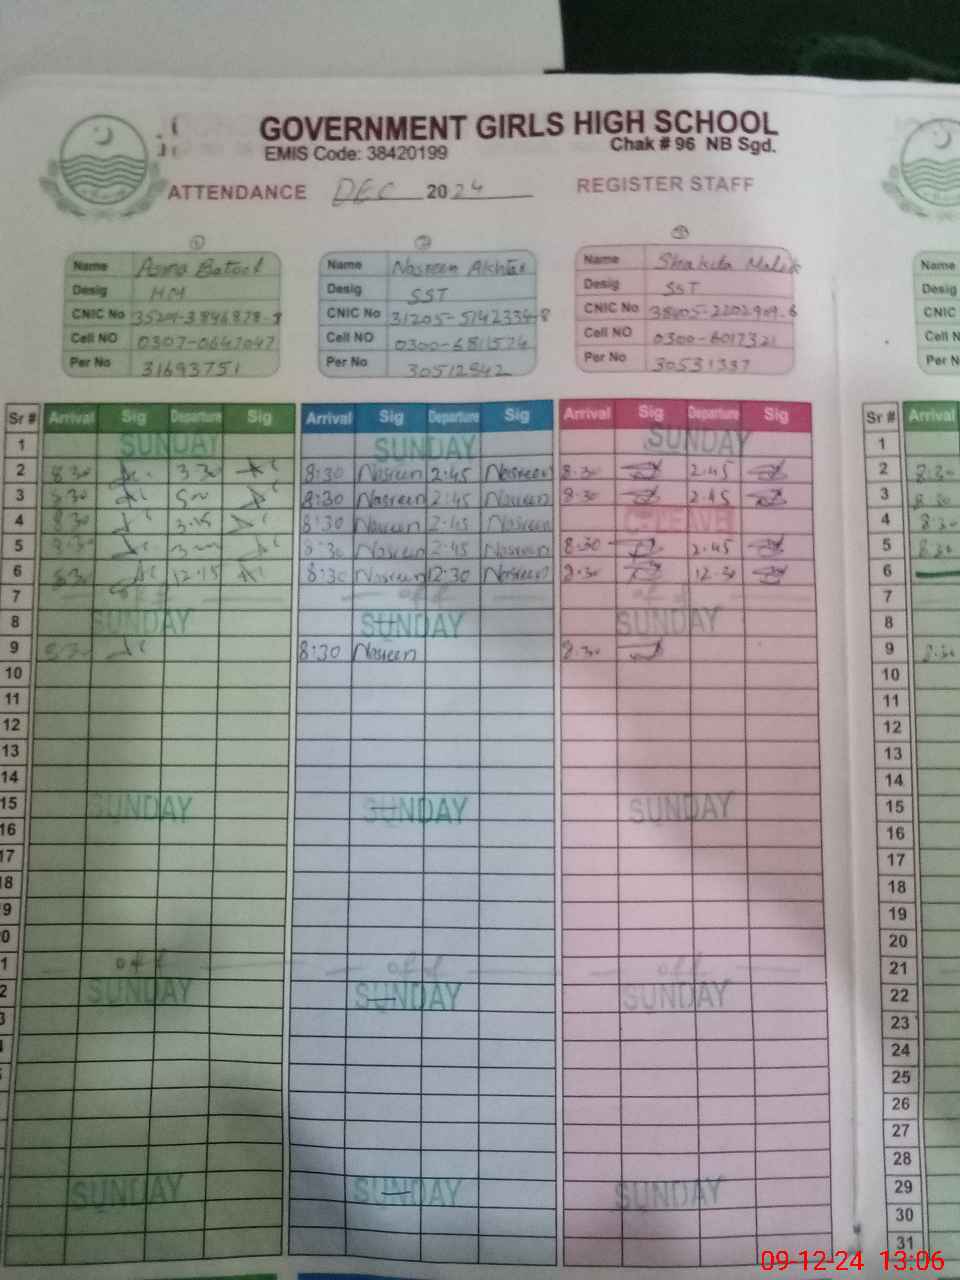 GOVERNMENT GIRLS HIGH SCHOOL
EMIS Code: 38420199 Chak # 96 NB Sgd.
ATTENDANCE DEC 2024 REGISTER STAFF
1 2 3
Name Asma Batool Name Nasreen Akhtar Name Shakila Malik Name
Desig HM Desig SST Desig SST Desig
CNIC No CNIC No 31205-5142334-8 CNIC No 38405-2202909-6 CNIC
Cell NO 0307-0647047 Cell NO 0300-6811574 Cell NO 0300-6017321 Cell N
Per No 31693751 Per No 30512942 Per No 30531337 Per N
Sr # Arrival Sig Departure Sig Arrival Sig Departure Sig Arrival Sig Departure Sig Sr # Arrival
1 SUNDAY SUNDAY SUNDAY 1
2 8:30 3:30 8:30 Nasreen 2:45 Nasreen 8:30 2:45 2 8:30
3 8:30 8:30 Nasreen 2:45 Nasreen 8:30 2:45 3 8:30
4 8:30 3:15 8:30 Nasreen 2:45 Nasreen C-LEAVE 4 8:30
5 8:30 8:30 Nasreen 2:45 Nasreen 8:30 2:45 5 8:30
6 8:30 12:15 8:30 Nasreen 12:30 Nasreen 8:30 12:30 6
7 off off off 7
8 SUNDAY SUNDAY SUNDAY 8
9 8:30 8:30 Nasreen 8:30 9 8:30
10 10
11 11
12 12
13 13
14 14
15 SUNDAY SUNDAY SUNDAY 15
16 16
17 17
18 18
9 19
0 20
1 off off off 21
2 SUNDAY SUNDAY SUNDAY 22
3 23
24
25
26
27
28
SUNDAY SUNDAY SUNDAY 29
30
31
09-12-24 13:06